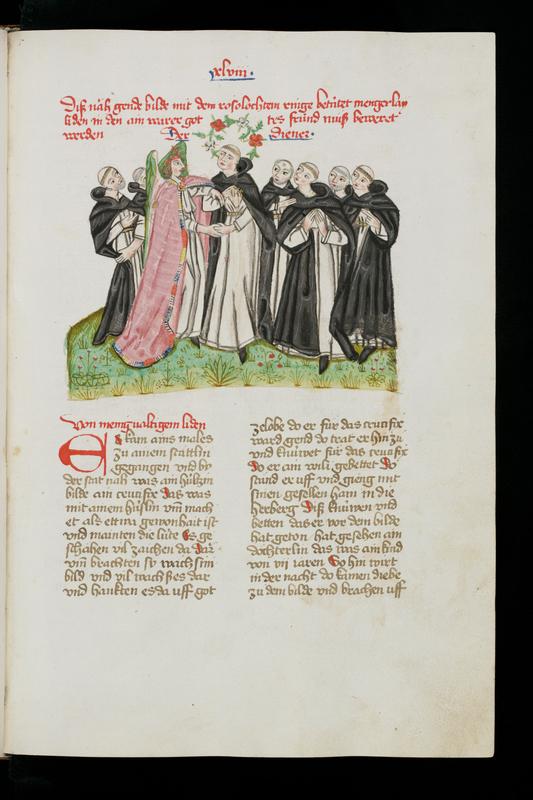 xlviii.
Diß nāch gende bilde mit dem rosolochtem ringe betütet mengerlay
liden in den ain warer got tes fründ muß beweret
werden Der diener.
Von menigualtigem liden
Es kam ains males
zu ainem stattlin
gegangen und by
der stat nāh was ain hültzin
bilde ain crucifix das was
mit ainem hüslin um mach
et als ettwa gewonhait ist
und mainten die lüte Es ge
schāhen vil zaichen da dar
vm̄ brachten sy wachsin
bild und vil wachßes dar
und hankten es da uff got
zelobe do er für das crucifix
ward gend do trat er hin zu
und knüwet für das crucifix
Do er ain wili gebettet do
stund er uff und gieng mit
sinen gesellen hain in die
herberg Diß knüwen und
betten das er vor dem bilde
hat geton hat gesehen ain
döchterlin das was ain kind
von vii iaren So hin wirt
in der nacht do kamen diebe
zu dem bilde und brachen uff